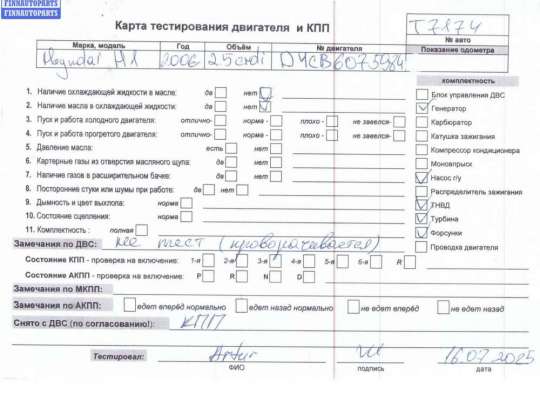 FINNAUTOPARTS
FINNAUTOPARTS
Карта тестирования двигателя и КПП
T7174
№ авто
Марка, модель Год Объём № двигателя Показание одометра
Hyundai H1 2006 2.5 crdi D4CB6075984
комплектность
1. Наличие охлаждающей жидкости в масле: да нет
Блок управления ДВС
2. Наличие масла в охлаждающей жидкости: да нет
Генератор
3. Пуск и работа холодного двигателя: отлично- норма - плохо - не завелся-
Карбюратор
4. Пуск и работа прогретого двигателя: отлично- норма - плохо - не завелся-
Катушка зажигания
5. Давление масла: есть нет
Компрессор кондиционера
6. Картерные газы из отверстия масляного щупа: да нет
Моновпрыск
7. Наличие газов в расширительном бачке: да нет
Насос г/у
8. Посторонние стуки или шумы при работе: да нет
Распределитель зажигания
9. Дымность и цвет выхлопа: норма
ТНВД
10. Состояние сцепления: норма
Турбина
11. Комплектность : полная
Форсунки
Замечания по ДВС: не тест (проворачивается)
Проводка двигателя
Состояние КПП - проверка на включение: 1-я 2-я 3-я 4-я 5-я 6-я R
Состояние АКПП - проверка на включение: P R N D
Замечания по МКПП:
Замечания по АКПП: едет вперёд нормально едет назад нормально не едет вперёд не едет назад
Снято с ДВС (по согласованию!): КПП
Тестировал: Artur 16.07.2025
ФИО подпись дата